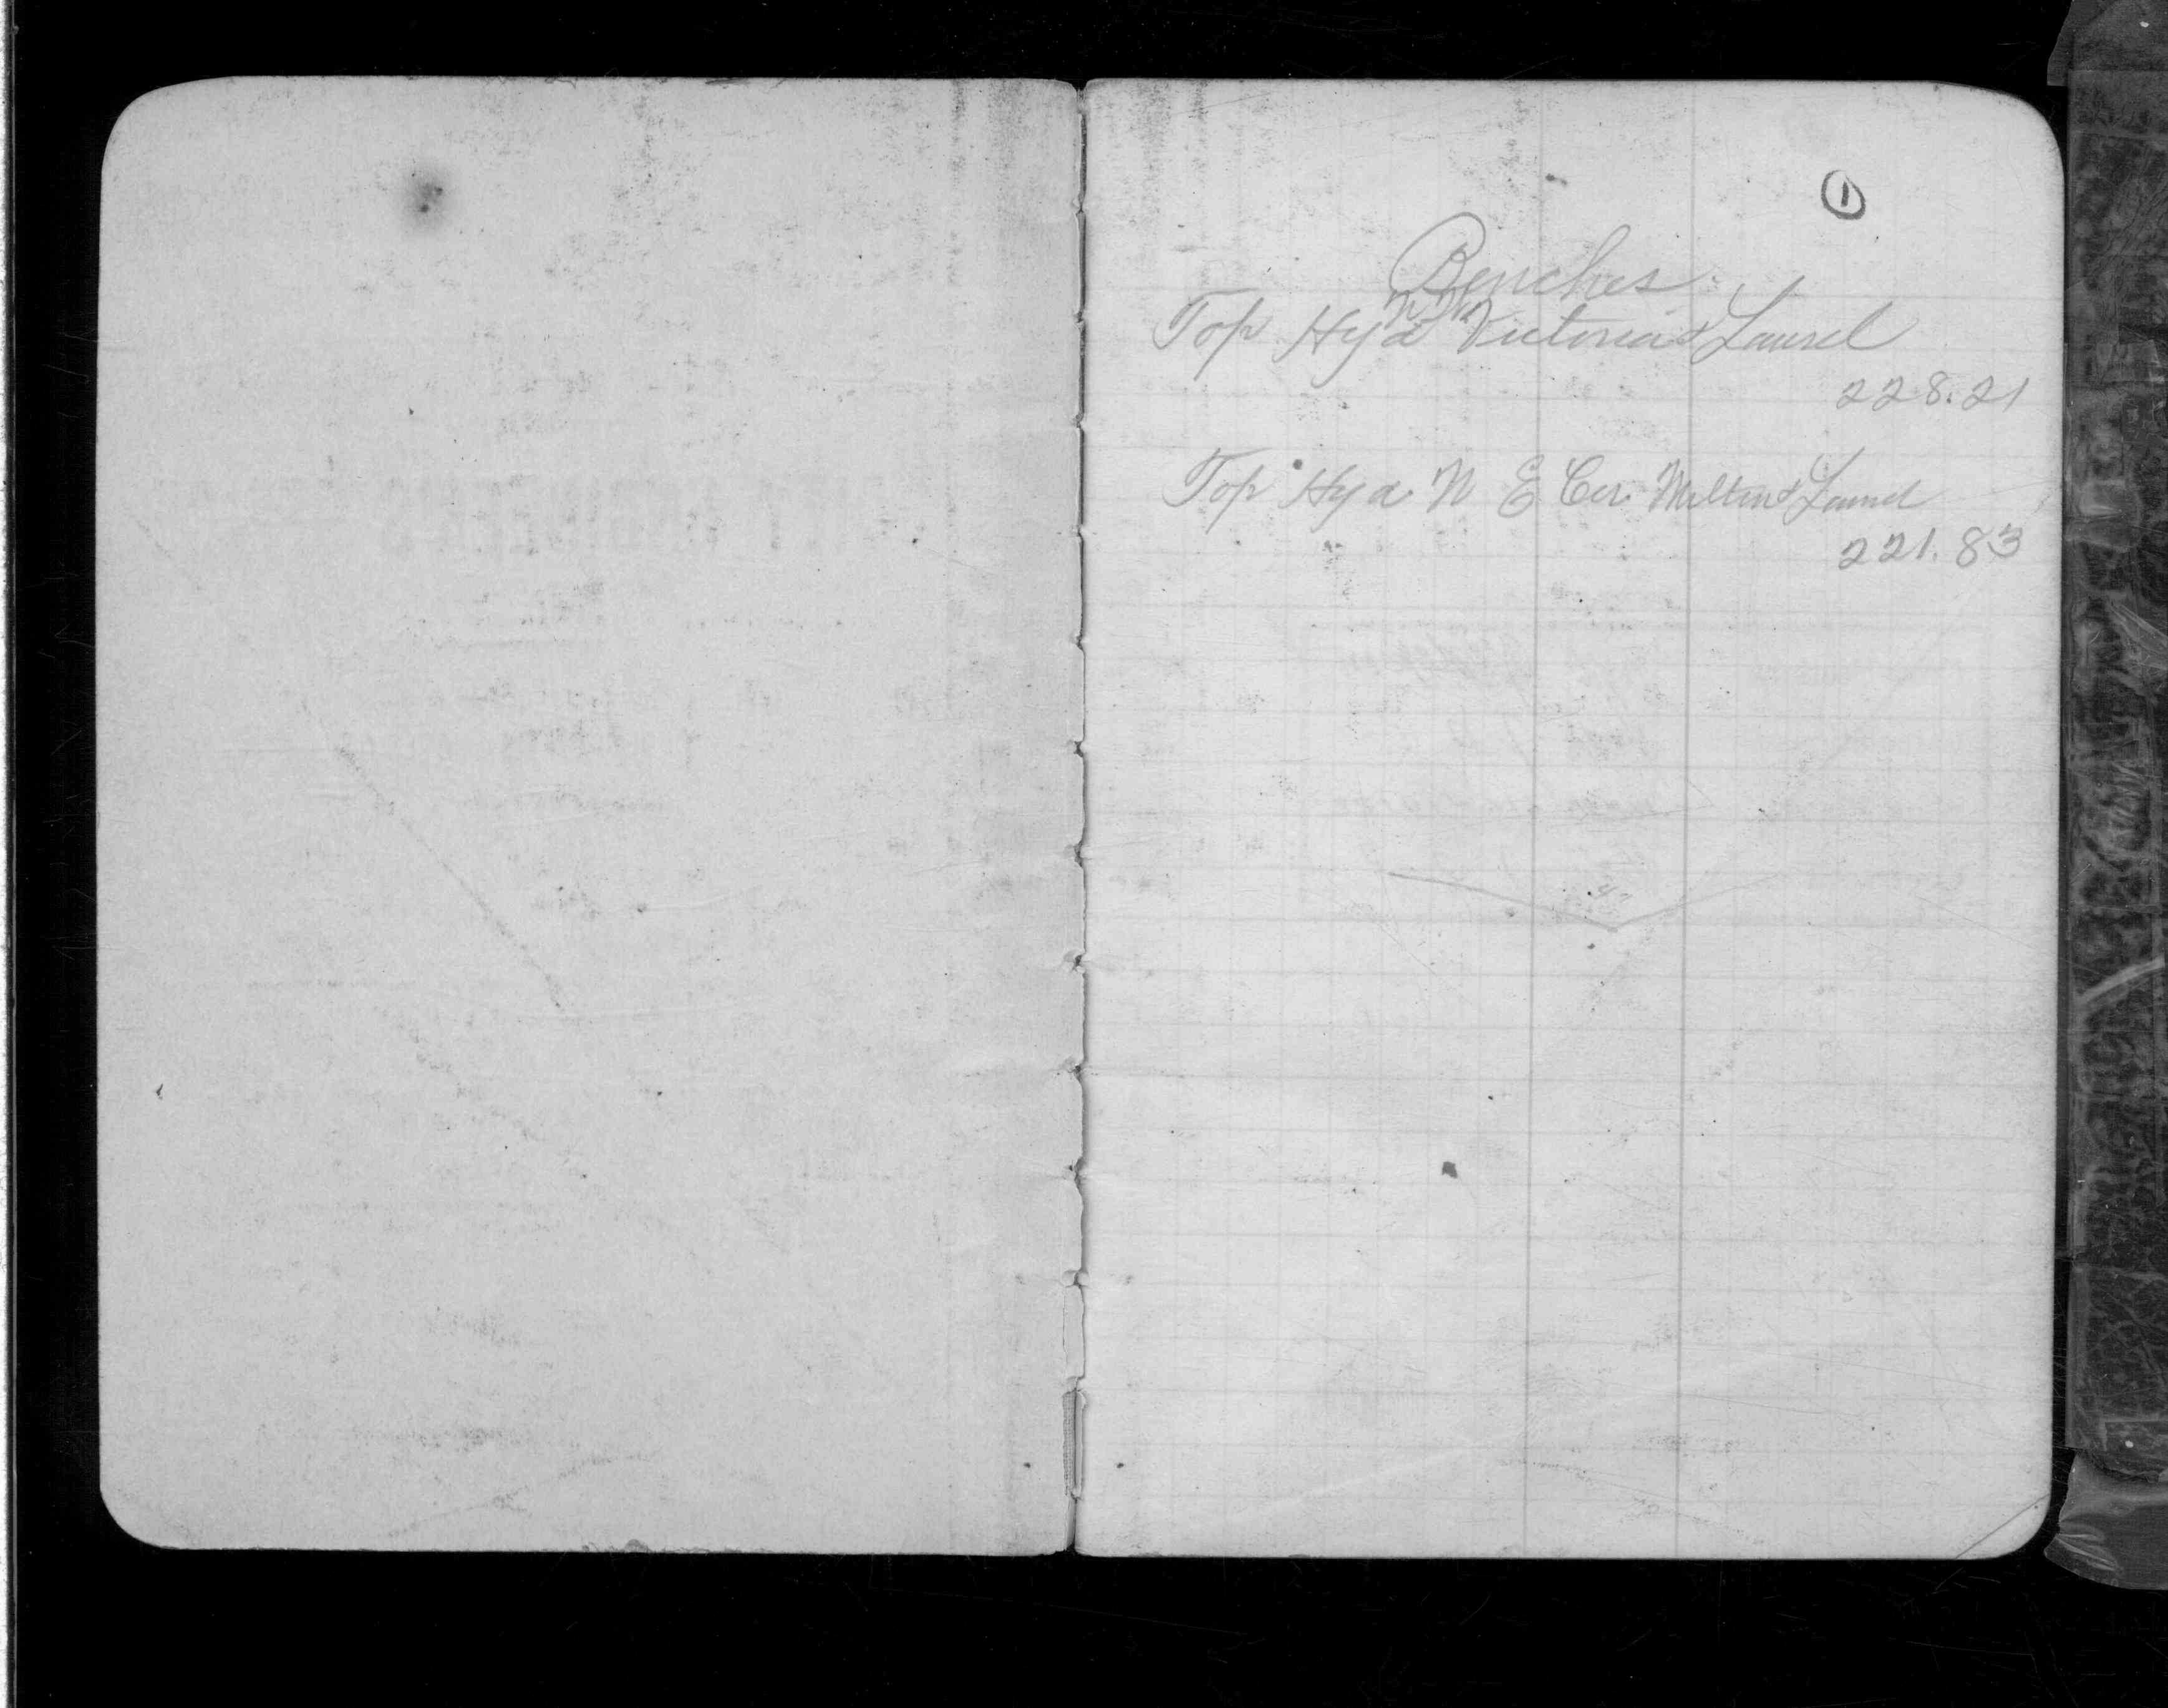 ①
Benches
N W
Top Hyd Victoria & Laurel
228.21
Top Hyd N E Cor Milton & Laurel
221.83